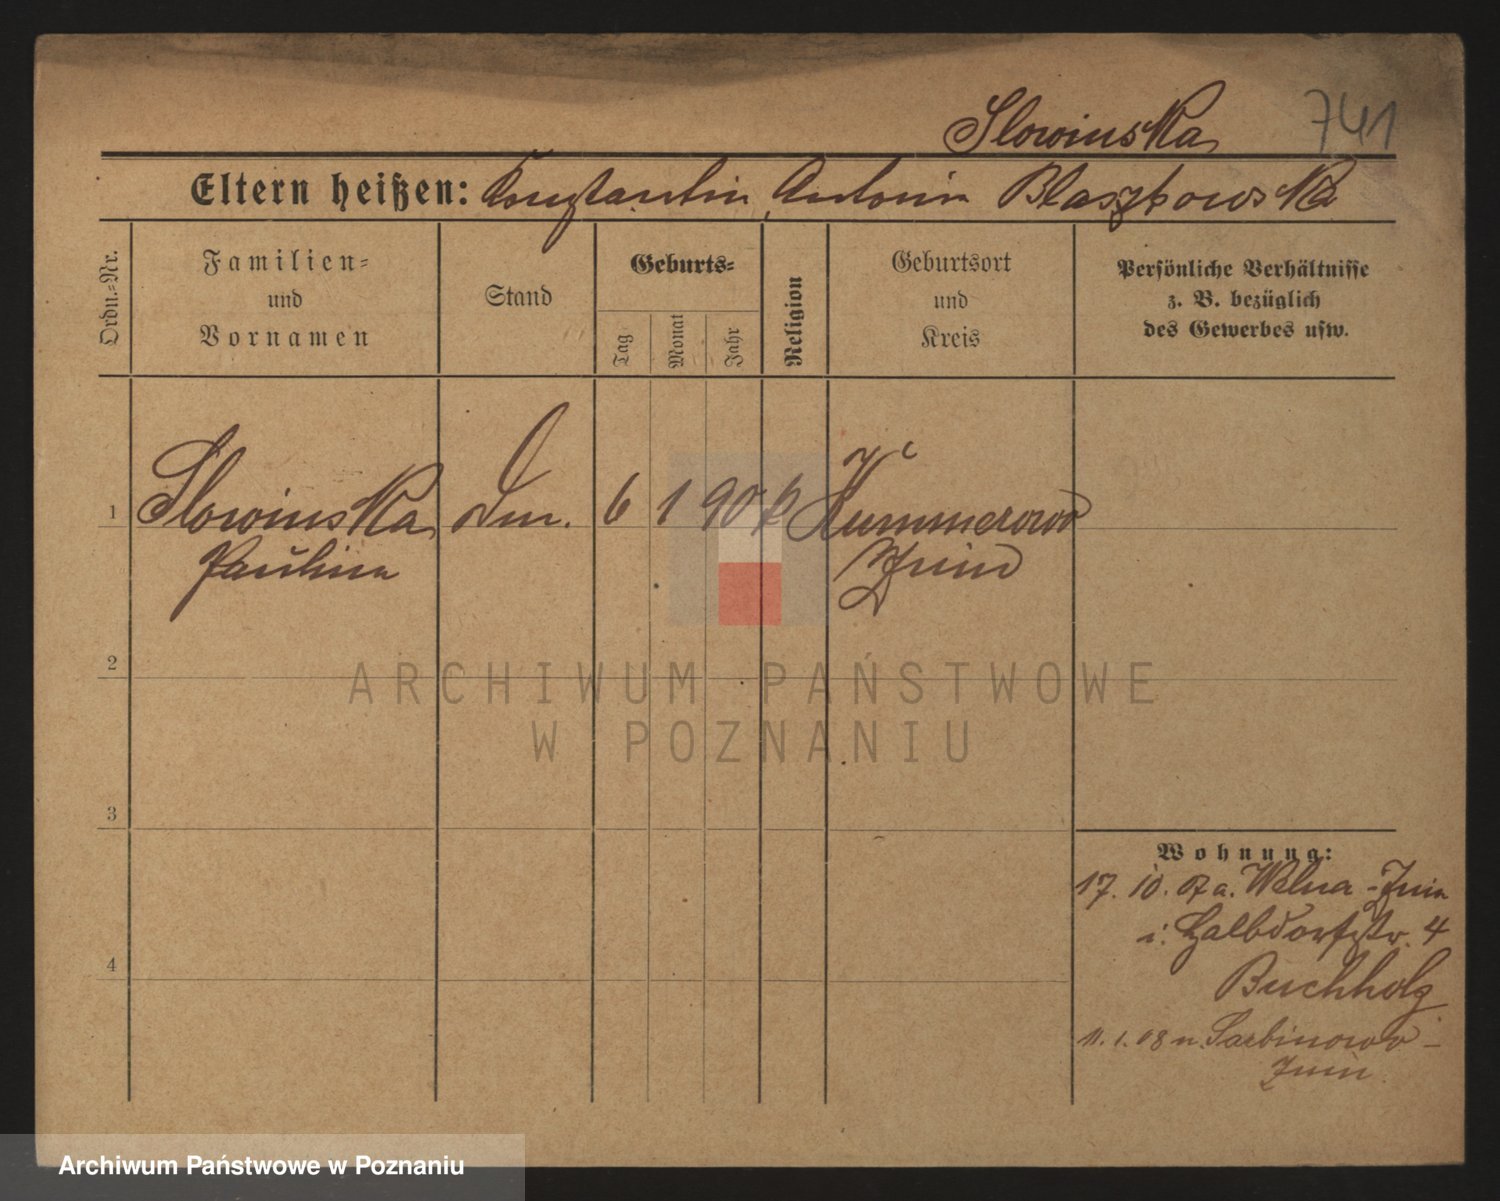 Slowinska
741
Eltern heißen: Konstantin, Antonin Blaszkowska
Ordn.-Nr.
Familien- und Vornamen
Stand
Geburts-
Tag
Monat
Jahr
Religion
Geburtsort und Kreis
Persönliche Verhältnisse
z. B. bezüglich
des Gewerbes usw.
1 Slowinska 6 1 90
Paulina Znin
2
3
4
Wohnung:
17. 10. 07 a. Welna - Znin
i. Halbdorfstr. 4
Buchholz
11. 1. 08 n. Sarbinowo -
Znin
ARCHIWUM PAŃSTWOWE
W POZNANIU
Archiwum Państwowe w Poznaniu